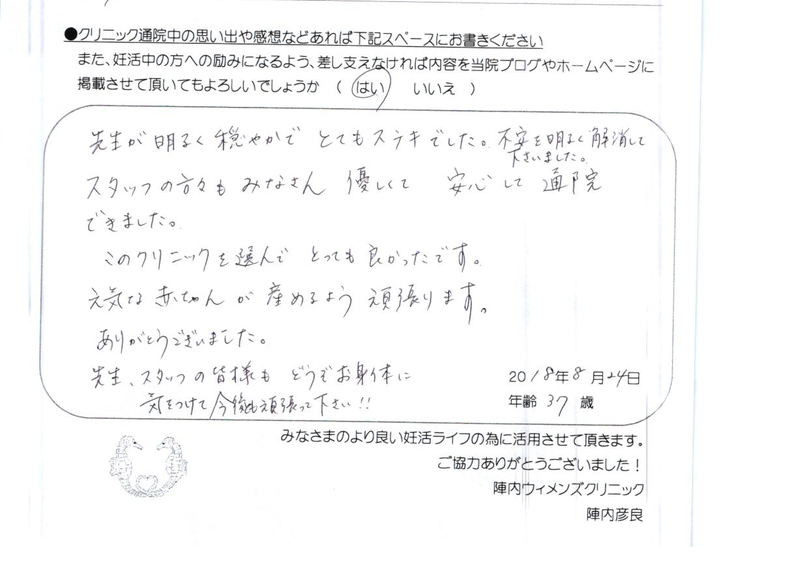 ●クリニック通院中の思い出や感想などあれば下記スペースにお書きください
また、妊活中の方への励みになるよう、差し支えなければ内容を当院ブログやホームページに
掲載させて頂いてもよろしいでしょうか （ はい　いいえ ）
先生が明るく穏やかで とてもステキでした。不安を明るく解消して
下さいました。
スタッフの方々も みなさん 優しくて 安心して 通院
できました。
このクリニックを選んで とっても良かったです。
元気な赤ちゃんが産めるよう 頑張ります。
ありがとうございました。
先生、スタッフの皆様も どうぞお身体に
気をつけて今後も頑張って下さい!!
2018年8月24日
年齢 37 歳
みなさまのより良い妊活ライフの為に活用させて頂きます。
ご協力ありがとうございました！
陣内ウィメンズクリニック
陣内彦良